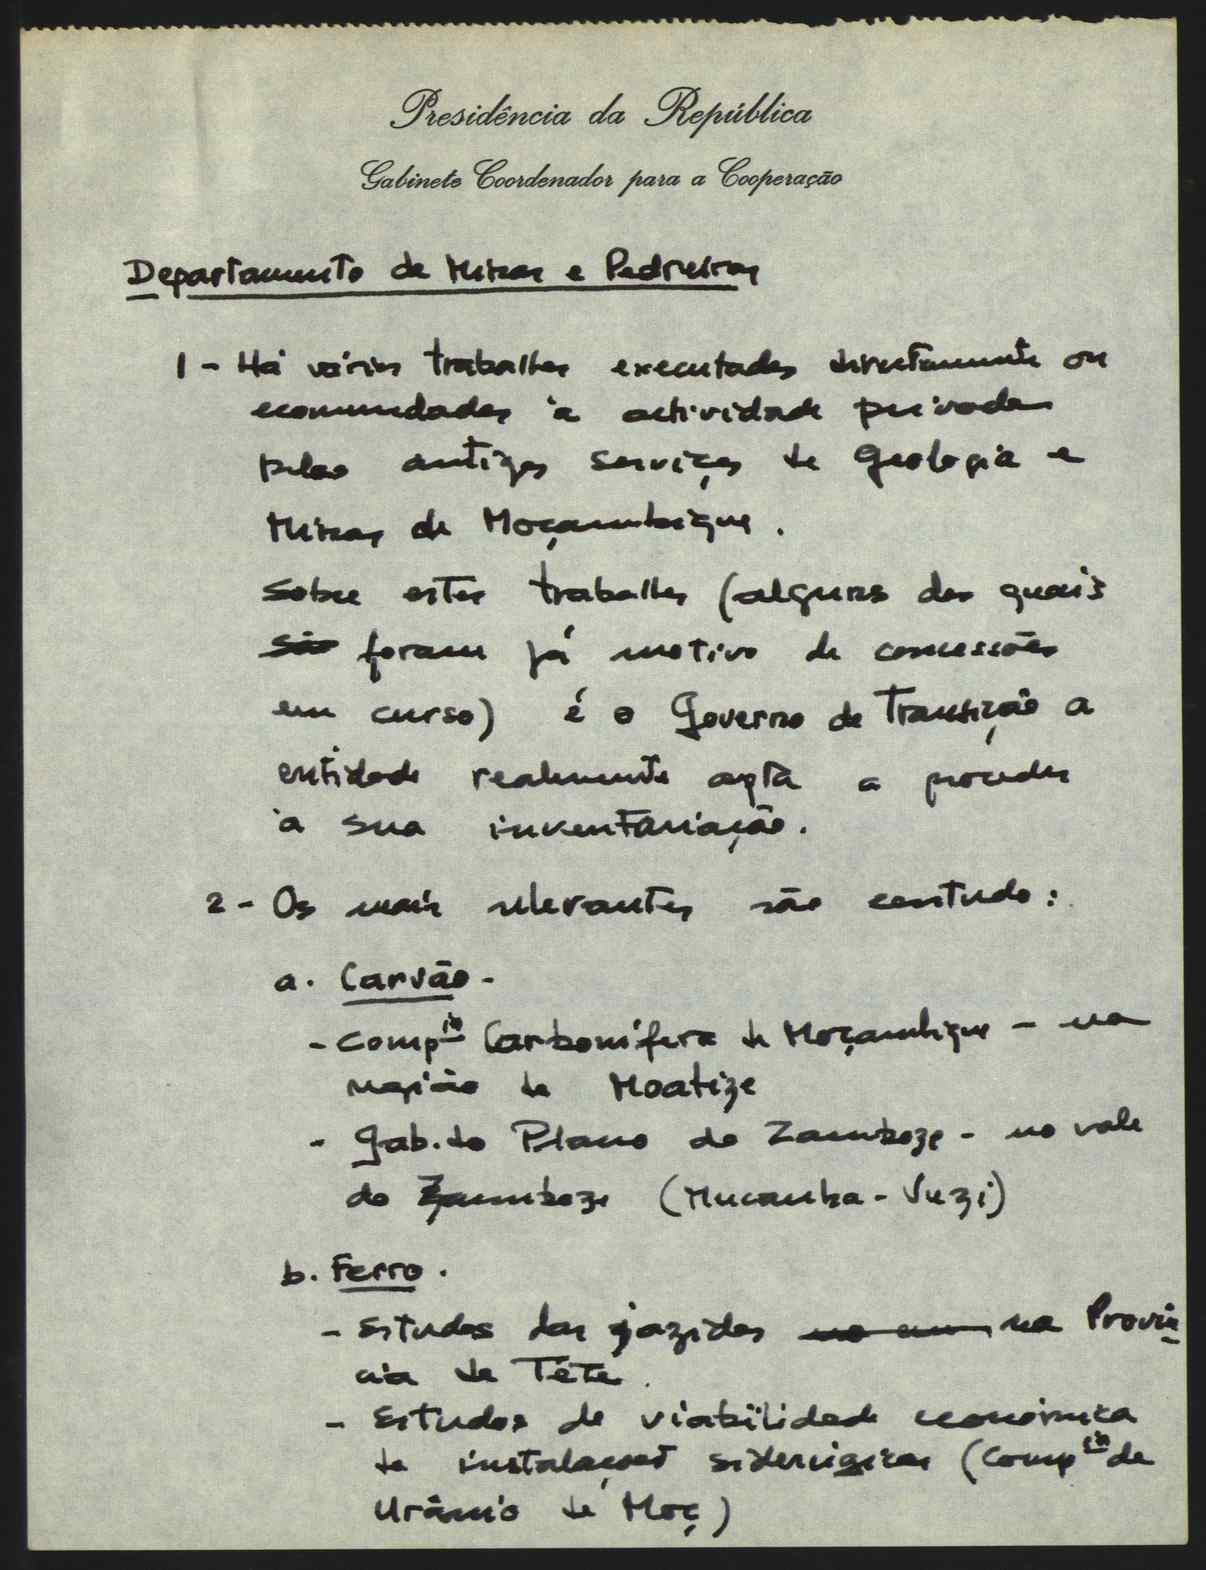 Presidência da República
Gabinete Coordenador para a Cooperação
Departamento de Minas e Pedreiras
1 - Há vários trabalhos executados directamente ou
ecomendados à actividade privada
pelos antigos serviços de Geologia e
Minas de Moçambique.
Sobre estes trabalhos (alguns dos quais
são foram já motivo de concessões
em curso) é o Governo de Transição a
entidade realmente apta a proceder
à sua inventariação.
2 - Os mais relevantes são contudo:
a. Carvão -
- Compia Carbonífera de Moçambique - na
região de Moatize
- Gab. do Plano do Zambeze - no vale
do Zambeze (Mucanha - Vuzi)
b. Ferro.
- Estudos das jazidas na Provín
cia de Tete.
- Estudos de viabilidade económica
de instalações siderúrgicas (Compia de
Urânio de Moç)